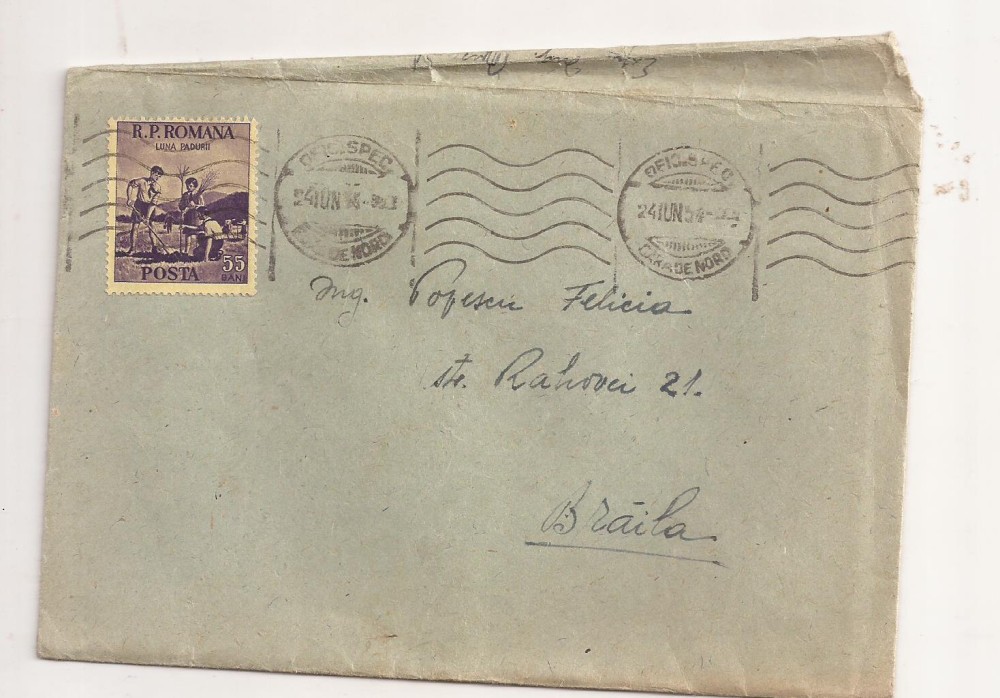 R.P. ROMANA
LUNA PADURII
POSTA
55
BANI
OFIC.SPEC.
24 IUN 54
GARA DE NORD
OFIC.SPEC.
24 IUN 54
GARA DE NORD
Ing. Popescu Felicia
str. Rahovei 21.
Brăila